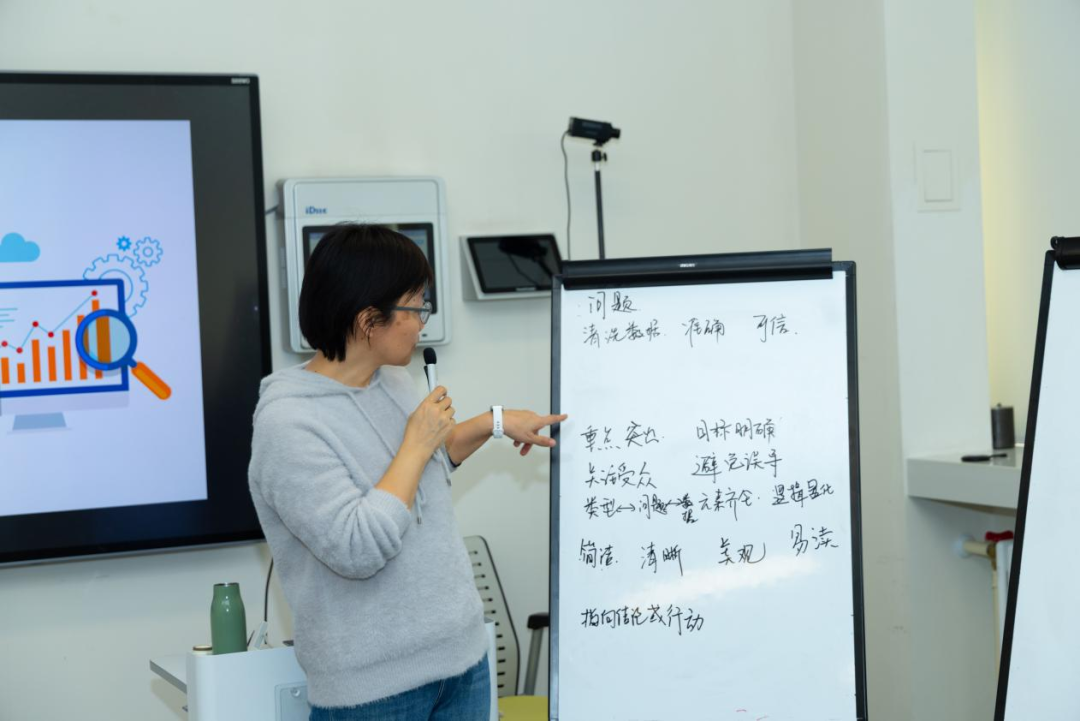 iDive
问题
清洗数据. 准确 可信.
重点突出. 目标明确
关注受众 避免误导
类型↔问题↔ 元素齐全. 逻辑
简洁. 清晰 美观 易读
指向结论或行动